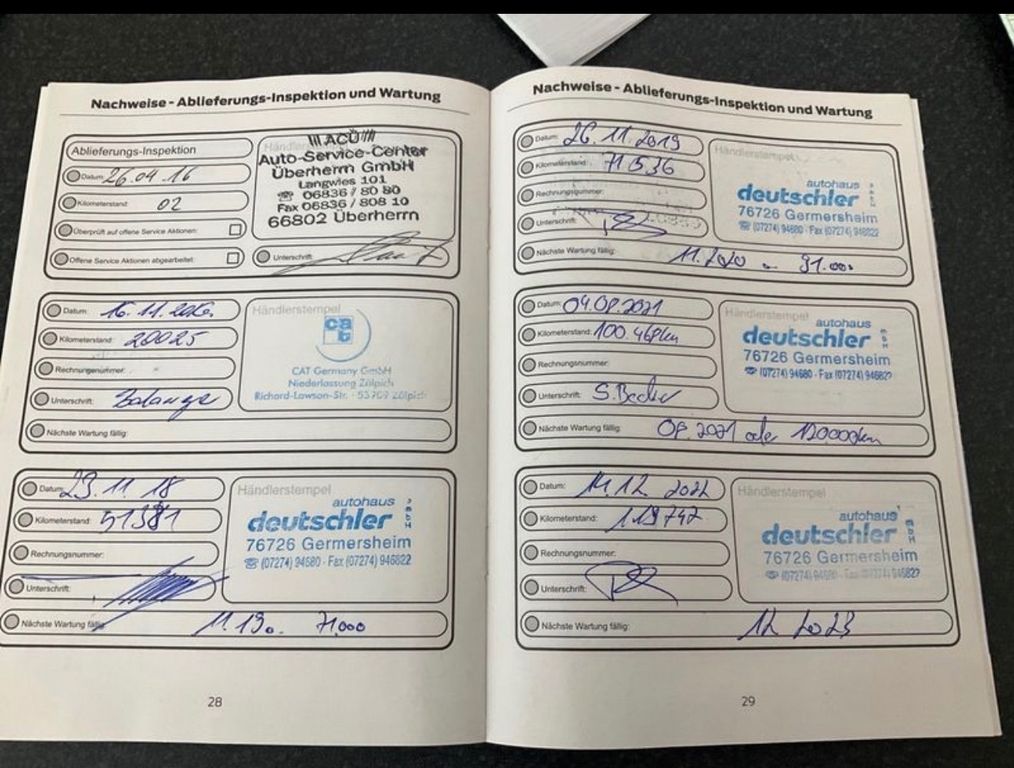 Nachweise - Ablieferungs-Inspektion und Wartung
Ablieferungs-Inspektion
Datum: 26.04.16
Kilometerstand: 02
Überprüft auf offene Service Aktionen:
Offene Service Aktionen abgearbeitet:
Händlerstempel
ACÜ
Auto-Service-Center
Überherrn GmbH
Langwies 101
☎ 06836 / 80 80
Fax 06836 / 808 10
66802 Überherrn
Unterschrift:
Datum: 16.11.
Kilometerstand: 20025
Rechnungsnummer:
Unterschrift:
Nächste Wartung fällig:
Händlerstempel
cat
CAT Germany GmbH
Niederlassung Zülpich
Richard-Lawson-Str. · 53909 Zülpich
Datum: 23.11 18
Kilometerstand: 51381
Rechnungsnummer:
Unterschrift:
Nächste Wartung fällig: 11.19 71.000
Händlerstempel
autohaus
deutschler GmbH
76726 Germersheim
☎ (07274) 94680 · Fax (07274) 946822
28
Nachweise - Ablieferungs-Inspektion und Wartung
Datum: 26.11.2019
Kilometerstand: 71536
Rechnungsnummer:
Unterschrift:
Nächste Wartung fällig: 11.2020 91.000
Händlerstempel
autohaus
deutschler GmbH
76726 Germersheim
☎ (07274) 94680 · Fax (07274) 946822
Datum: 04.08.2021
Kilometerstand: 100.468km
Rechnungsnummer:
Unterschrift: S.Becker
Nächste Wartung fällig: 08.2021 oder 120000km
Händlerstempel
autohaus
deutschler GmbH
76726 Germersheim
☎ (07274) 94680 · Fax (07274) 946822
Datum: 12 2022
Kilometerstand: 119747
Rechnungsnummer:
Unterschrift:
Nächste Wartung fällig: 12 2023
Händlerstempel
autohaus
deutschler GmbH
76726 Germersheim
☎ (07274) 94680 · Fax (07274) 946822
29